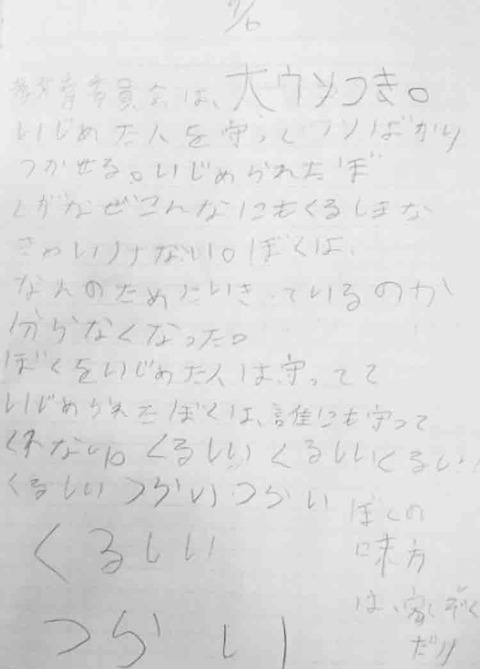 教育委員会は、大ウソつき。
いじめた人を守ってウソばかり
つかせる。いじめられたぼ
くがなぜこんなにもくるしまな
きゃいけない。ぼくは、
なんのためにいきているのか
分らなくなった。
ぼくをいじめた人は守ってて
いじめられたぼくは、誰にも守って
くれない。くるしいくるしいくるしい
くるしいつらいつらい
くるしい
つらい
ぼくの
味方
は、家ぞく
だけ